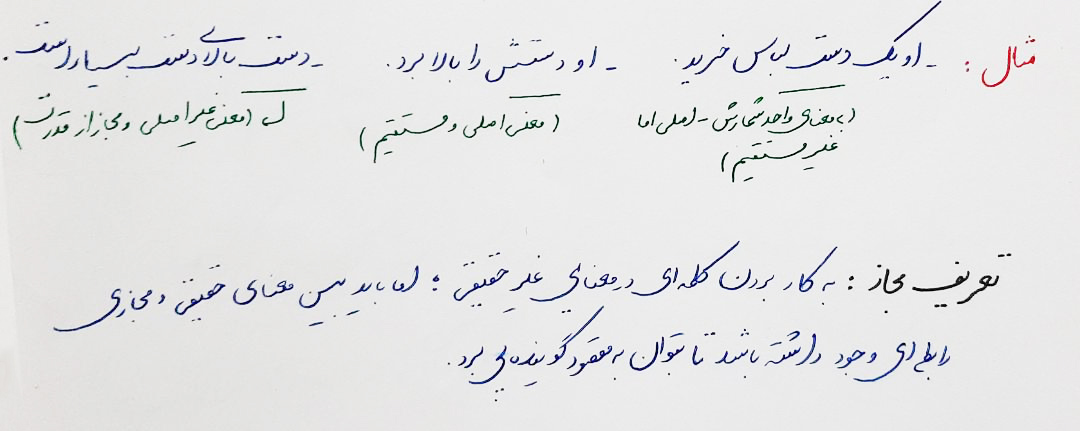 مثال : - او یک دست لباس خرید. - او دستش را بالا برد. - دست بالای دست بسیار است.
(به معنای واحد شمارش - اصلی اما (معنی اصلی و مستقیم) (معنی غیر اصلی و مجاز از قدرت)
غیر مستقیم)
تعریف مجاز : به کار بردن کلمه‌ای در معنای غیر حقیقی ؛ اما باید بین معنای حقیقی و مجازی
رابطه‌ای وجود داشته باشد تا بتوان به مقصود گوینده پی برد.